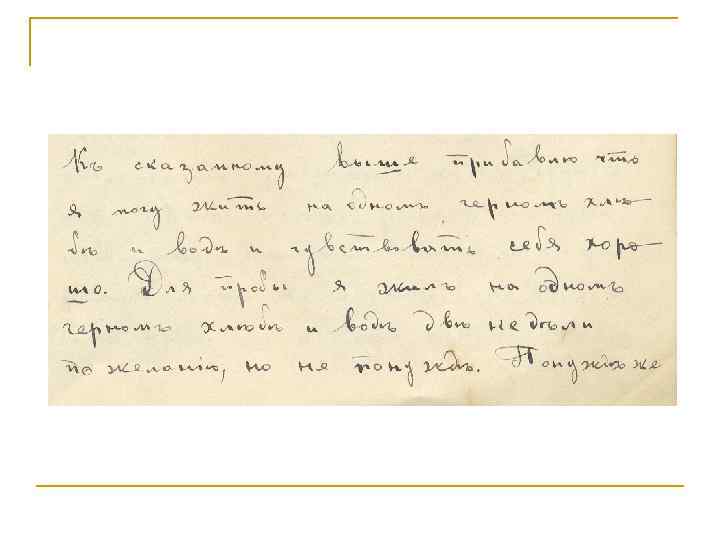 Къ сказанному выше прибавлю что
я могу жить на одномъ черномъ хлѣ-
бѣ и водѣ и чувствовать себя хоро-
шо. Для пробы я жилъ на одномъ
черномъ хлѣбѣ и водѣ двѣ недѣли
по желанію, но не по нуждѣ. По нуждѣ же